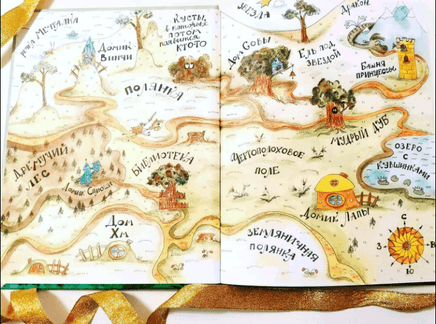 гора Мечталка
Домик
Винчи
Кусты,
в которых
потом
появится
КТОТО
Полянка
Дремучий
лес
Домик Сероша
Библиотека
Дом
Хм
звезда
Дракон
Дом Совы
Ель под
звездой
Башня
принцессы
Мудрый Дуб
Чертополоховое
поле
Озеро
с
кувшинками
Домик Лапы
Земляничная
полянка
С
З
В
Ю